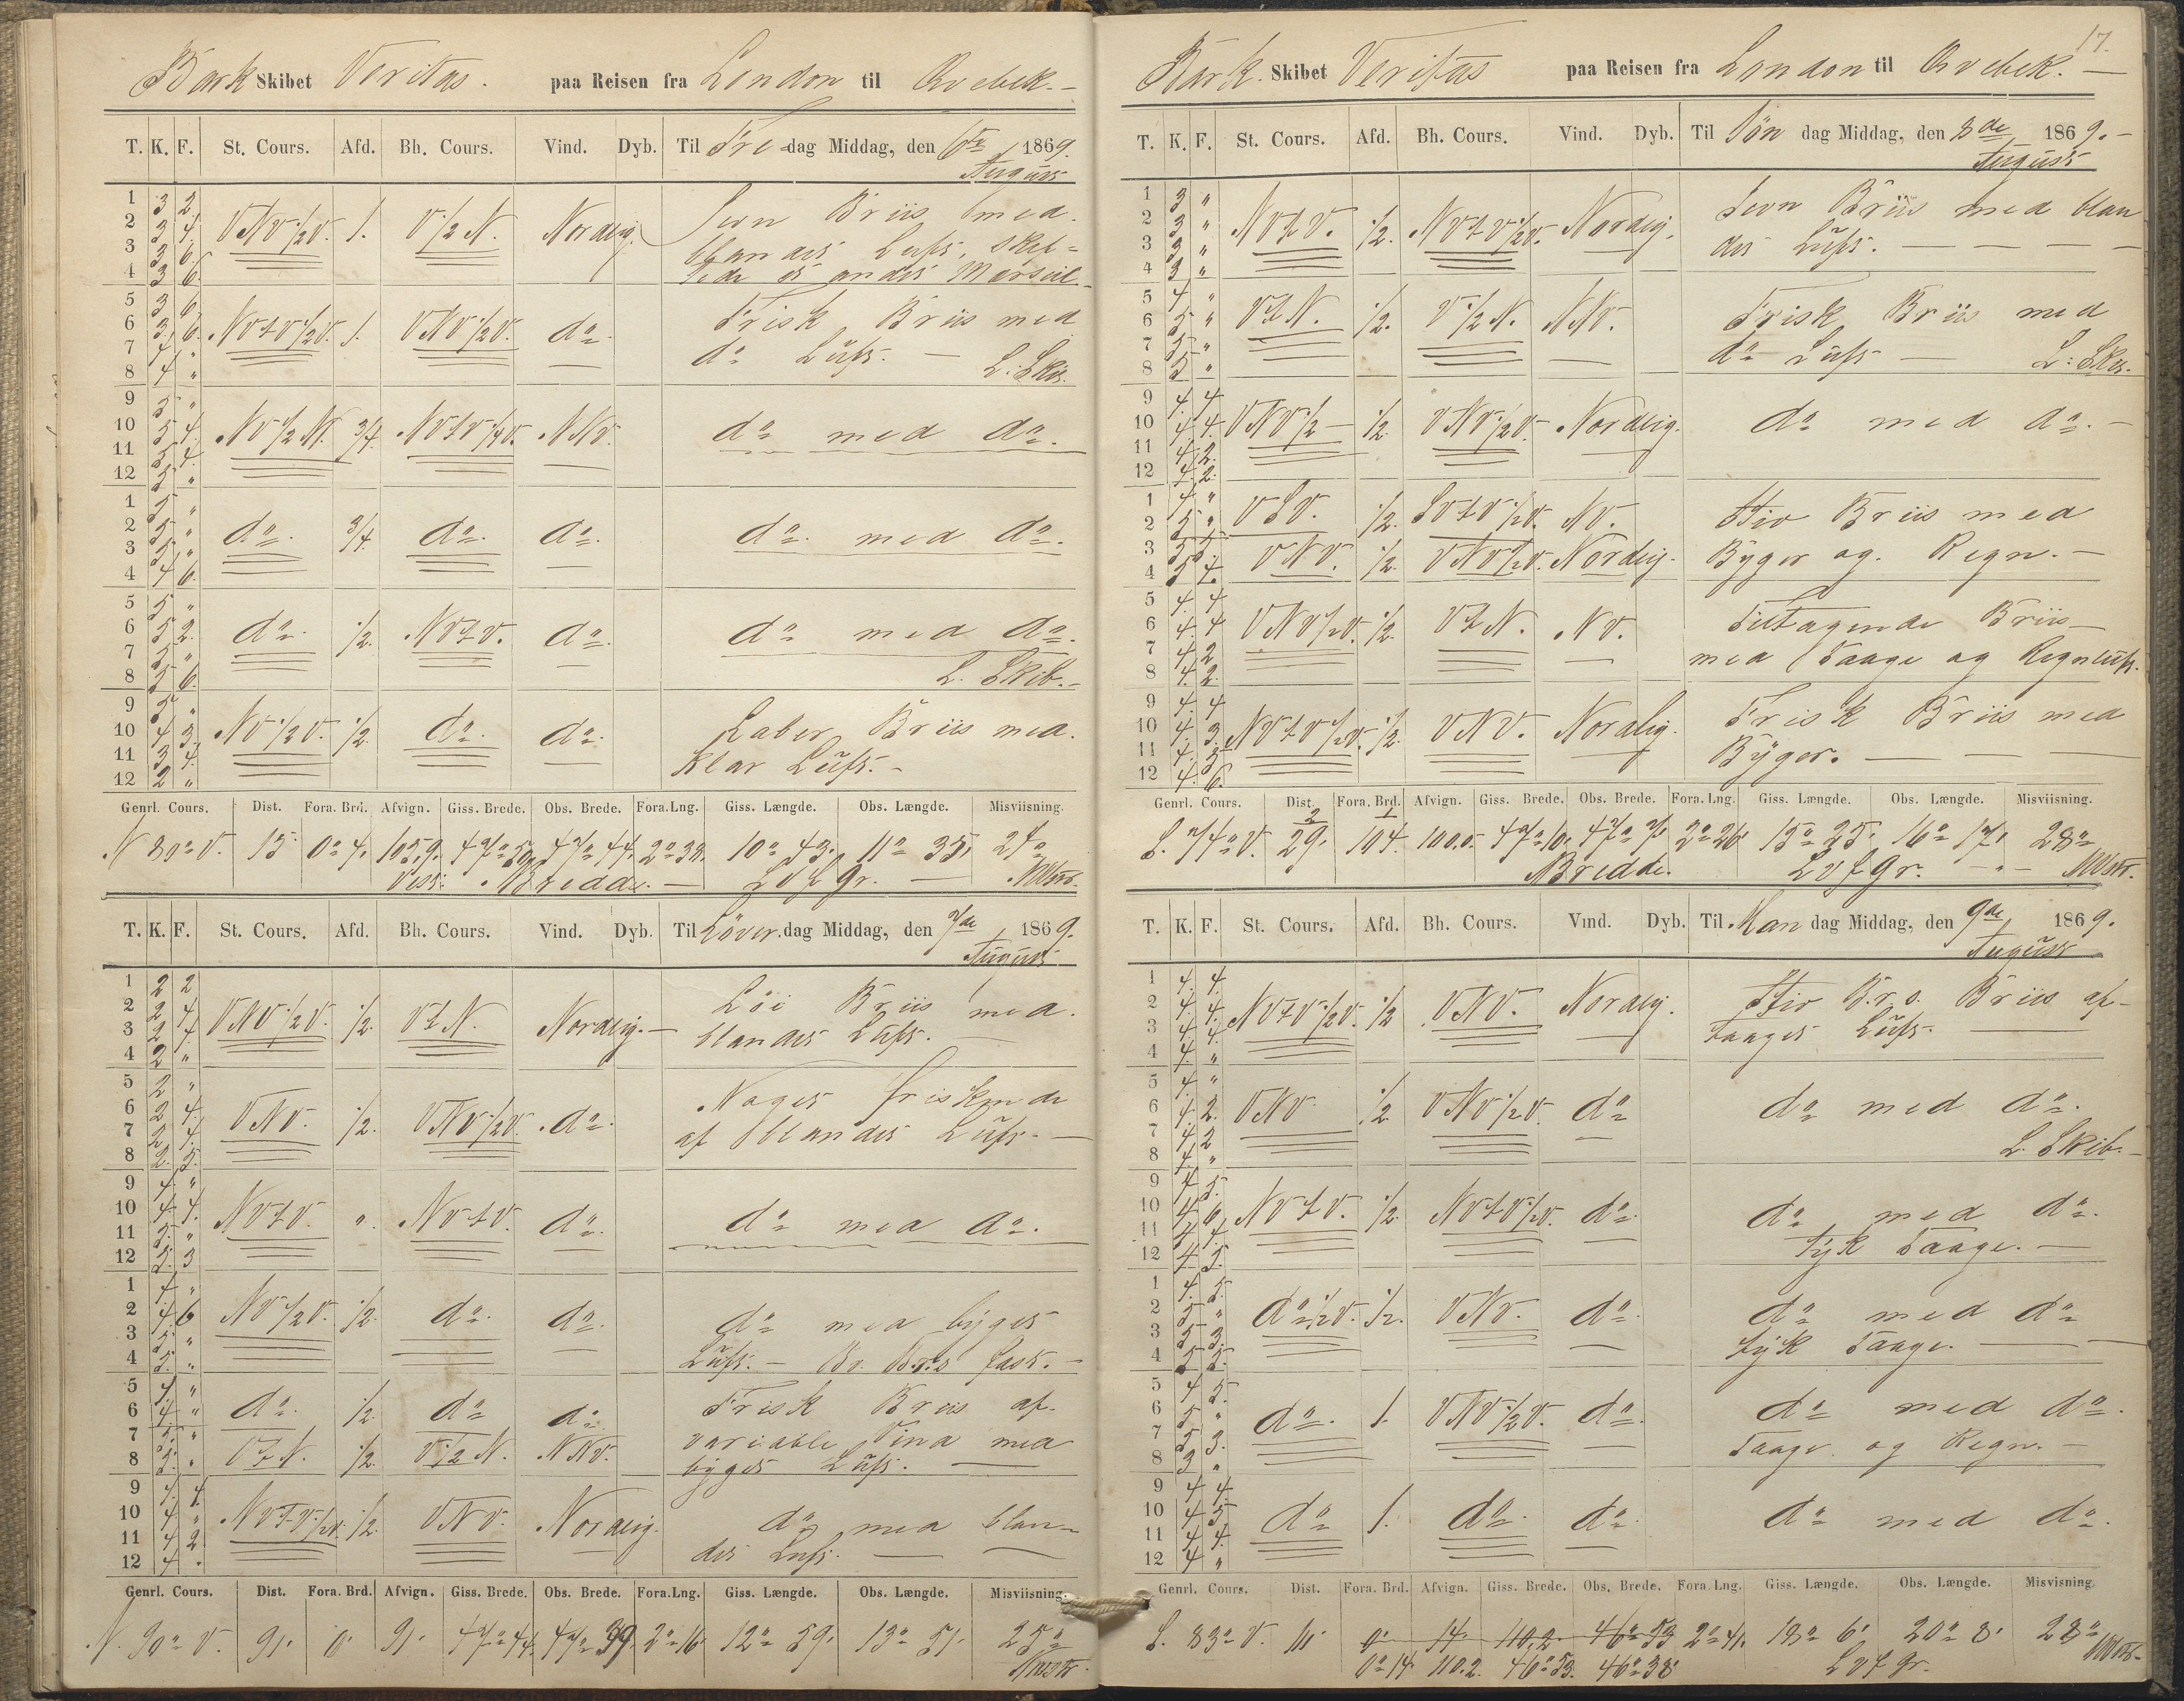 Bark Skibet Veritas. paa Reisen fra London til Qvebek. –
T. K. F. St. Cours. Afd. Bh. Cours. Vind. Dyb. Til Fre-dag Middag, den 6te August 1869.
1 3 2
2 3 4 VNV 1/2 V. 1. V 1/2 N. Nordlig. Jevn Briis med
3 3 6 blandet Luft,
4 3 6
5 3 6
6 3 6 NVtV 1/2 V. 1. VNV 1/2 V. do Frisk Briis med
7 4 " do Luft. –
8 4 " L. Skib.
9 5 "
10 5 4 NV 1/2 N. 3/4 NVtV 1/4 V. NNV. do med do.
11 5 4
12 5 "
1 5 "
2 5 " do. 3/4 do. do. do. med do.
3 5 "
4 4 6
5 5 "
6 5 2 do. 1/2 NVtV. do. do med do.
7 5 "
8 5 6 L. Skib. –
9 5 "
10 4 3 NV 1/2 V. 1/2 do. do. Laber Briis med
11 3 4 Klar Luft. –
12 2 "
Genrl. Cours. Dist. Fora. Brd. Afvign. Giss. Brede. Obs. Brede. Fora.Lng. Giss. Længde. Obs. Længde. Misviisning.
N 80° V. 15 0° 4' 105,9. 47° 50' 47° 44' 2° 33' 10° 43' 11° 35' 24°
Vest. Bredde. – Lvfgr. –
T. K. F. St. Cours. Afd. Bh. Cours. Vind. Dyb. Til Löver dag Middag, den 7de August 1869.
1 2 2
2 2 4 VNV 1/2 V. 1/2 VtN. Nordlig. – Löi Briis med
3 2 4 blandet Luft. –
4 2 "
5 2 "
6 2 4 VNV. 1/2 VNV 1/2 V. do. Noget friskende
7 2 4 af blandet Luft. –
8 2 5
9 4 "
10 4 4 NVtV " NVtV. do. do med do.
11 5 "
12 5 3
1 4 "
2 4 6 NV 1/2 V. 1/2 do. do. do med byget
3 5 " Luft. –
4 5 "
5 4 "
6 4 " do. 1/2 do do Frisk Briis af
7 5 " variable Vind med
8 5 " VtN. 1/2 V 1/2 N. NNV. byget Luft. –
9 4 4
10 4 " NVtV 1/2 V. 1/2 VNV. Nordlig. do med blan-
11 4 2 det Luft. –
12 4 "
Genrl. Cours. Dist. Fora. Brd. Afvign. Giss. Brede. Obs. Brede. Fora.Lng. Giss. Længde. Obs. Længde. Misviisning.
N. 90° V. 91' 0' 91' 47° 44' 47° 39' 2° 16' 12° 59' 13° 51' 25°
17.
Bark Skibet Veritas paa Reisen fra London til Qvebek. –
T. K. F. St. Cours. Afd. Bh. Cours. Vind. Dyb. Til Sön dag Middag, den 8de August 1869. –
1 3 "
2 3 " NVtV. 1/2 NVtV 1/2 V. Nordlig. Jevn Briis med blan
3 3 " det Luft. – – –
4 3 "
5 4 "
6 5 " VtN. 1/2 V 1/2 N. NNV. Frisk Briis med
7 5 " do Luft –
8 5 " L: Skib.
9 4 4
10 4 4 VNV 1/2 – 1/2 VNV 1/2 V. Nordlig. do med do. –
11 4 2
12 4 2
1 4 " VSV. 1/2 SVtV 1/2 V. NV. Stiv Briis med
2 5 "
3 5 5 VNV. 1/2 VNV 1/2 V. Nordlig. Byger og Regn. –
4 5 4
5 4 4
6 4 4 VNV 1/2 V. 1/2 VtN. NV. Tiltagende Briis –
7 4 2 med Taage og Regnluft.
8 4 2
9 4 4
10 4 3 NVtV 1/2 V. 1/2 VNV. Nordlig. Frisk Briis med
11 4 5 Byger. –
12 4 6
Genrl. Cours. Dist. Fora. Brd. Afvign. Giss. Brede. Obs. Brede. Fora.Lng. Giss. Længde. Obs. Længde. Misviisning.
S. 74° V. 104 100.0 47° 10' 47° 7' 2° 26' 15° 25' 16° 17' 28°
Bredde. Lvfgr. –
T. K. F. St. Cours. Afd. Bh. Cours. Vind. Dyb. Til Man dag Middag, den 9de August 1869.
1 4 4
2 4 4 NVtV 1/2 V. 1/2 VNV. Nordlig. Stiv Briis af
3 4 4 taaget Luft. –
4 4 "
5 4 "
6 4 2 VNV 1/2 VNV 1/2 V. do do med do.
7 4 2
8 4 " L. Skib. –
9 4 5
10 4 6 NVtV. 1/2 NVtV 1/2 V. do. do med do.
11 4 4 tyk Taage. –
12 4 5
1 4 5
2 5 " do 1/2 V. 1/2 VNV. do. do med do
3 5 3 tyk Taage. –
4 5 5
5 4 5
6 5 " do. 1. VNV 1/2 V. do. do med do.
7 5 3 Taage og Regn. –
8 3 "
9 4 4
10 4 5 do 1. do. do. do med do.
11 4 4
12 4 "
Genrl. Cours. Dist. Fora. Brd. Afvign. Giss. Brede. Obs. Brede. Fora.Lng. Giss. Længde. Obs. Længde. Misvisning.
S. 83° V. 111' 0° 14' 110,2. 46° 53 2° 41' 18° 6' 20° 8' 28°
0° 14' 110.2. 46° 53' 46° 38' Lvfgr.